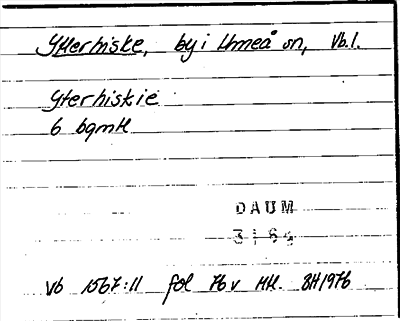 Ytterhiske, by i Umeå sn, Vb.l.
Yterhiskie
6 bqmtl
DAUM
3164
Vb 1567:11 fol 76v MH. BH1976